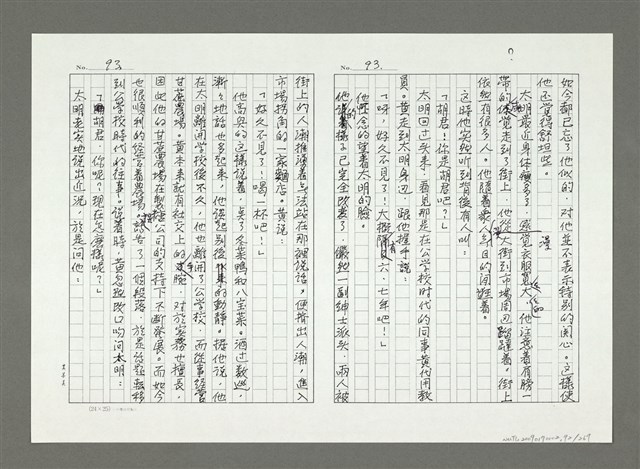 No. 93.
如今都已忘了他似的，對他並不表示特別的關心。這樣使
他還覺得舒坦些。
太明最近身體瘦多了，感覺衣服寬大，他注意着肩膀一
帶的
走到了街上，他從大街到市場周邊躑躅着。街上
依然有很多人。他隨着衆人
這時他突然聽到背後有人叫：
「胡君！你是胡君吧？」
太明回过头來，看見那是在公學校时代的同事黃代用教
員。黃走到太明身边，跟他握手說：
「呀，好久不見了！大概有六、七年吧！」
他
的望着太明的臉。
他的樣子已完全改变了，儼然一副紳士派头，兩人被
No. 93.
街上的人潮推湧着，無法站在那裡說話，便擠出人潮，進入
市場拐角的一家麵店。黃說：
「好久不見了！喝一杯吧！」
他高興的这樣說着，叫了冬菜鴨和八宝菜。酒过數巡，
漸漸地話也多起來，他談起别後的動靜。据他說，他
在太明離開学校後不久，他也離開了公学校，而從事経營
甘蔗農場。黃本來就有社交上的手腕，对於实務也擅長，
因此他的甘蔗農場在製糖公司的支持下不斷發展。而如今
也很順利的経營着農場。談女了一個段落，於是話題轉移
到公学校時代的往事。說着時，黃忽然改口吻问太明：
「胡君，你呢？現在怎麼樣呢？」
太明老実地說出近況，於是问他：